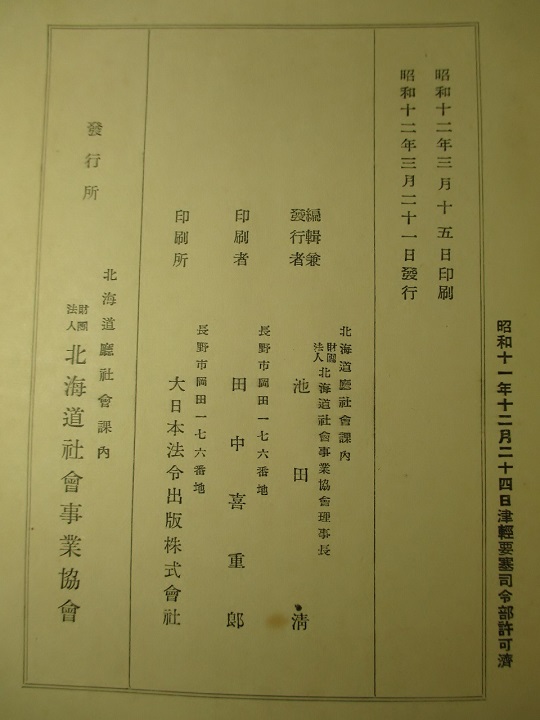 昭和十一年十二月二十四日津輕要塞司令部許可濟
昭和十二年三月十五日印刷
昭和十二年三月二十一日發行
編輯兼
發行者
北海道廳社會課內
財團
法人
北海道社會事業協會理事長
池田清
印刷者
長野市岡田一七六番地
田中喜重郎
印刷所
長野市岡田一七六番地
大日本法令出版株式會社
發行所
北海道廳社會課內
財團
法人
北海道社會事業協會